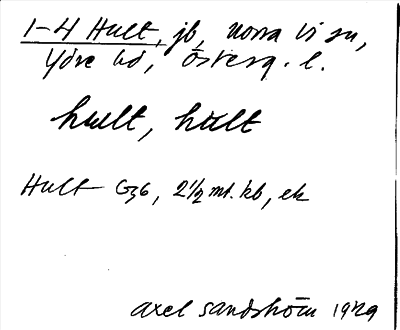 1-4 Hult, jb, Norra Vi sn,
Ydre hd, Österg. l.
hult, hult
Hult G36, 2½ mt. kb, ek
Axel Sandström 1929